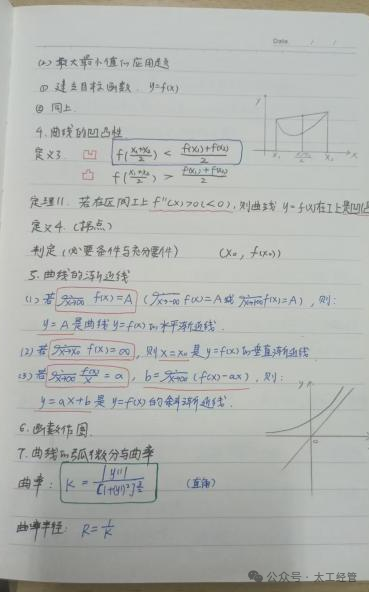 Date / /
(2) 最大最小值的应用题
① 建立目标函数 y=f(x)
② 同上.
4. 曲线的凹凸性
定义3. 凹 f((x₁+x₂)/2) < (f(x₁)+f(x₂))/2
凸 f((x₁+x₂)/2) > (f(x₁)+f(x₂))/2
y
x₁ (x₁+x₂)/2 x₂ x
定理11. 若在区间I上 f''(x)>0(<0), 则曲线 y=f(x)在I上是凹(凸
定义4. (拐点)
判定 (必要条件与充分要件) (x₀, f(x₀))
5. 曲线的渐近线
(1) 若 lim x→∞ f(x)=A ( lim x→-∞ f(x)=A 或 lim x→+∞ f(x)=A ), 则:
y=A 是曲线 y=f(x) 的水平渐近线.
(2) 若 lim x→x₀ f(x)=∞, 则 x=x₀ 是 y=f(x) 的垂直渐近线
(3) 若 lim x→∞ f(x)/x = a, b= lim x→∞ (f(x)-ax), 则:
y=ax+b 是 y=f(x) 的斜渐近线.
y
0
6. 函数作图.
7. 曲线的弧微分与曲率
曲率: K = |y''| / [1+(y')²]^(3/2)
曲率半径: R = 1/K
公众号 · 太工经管